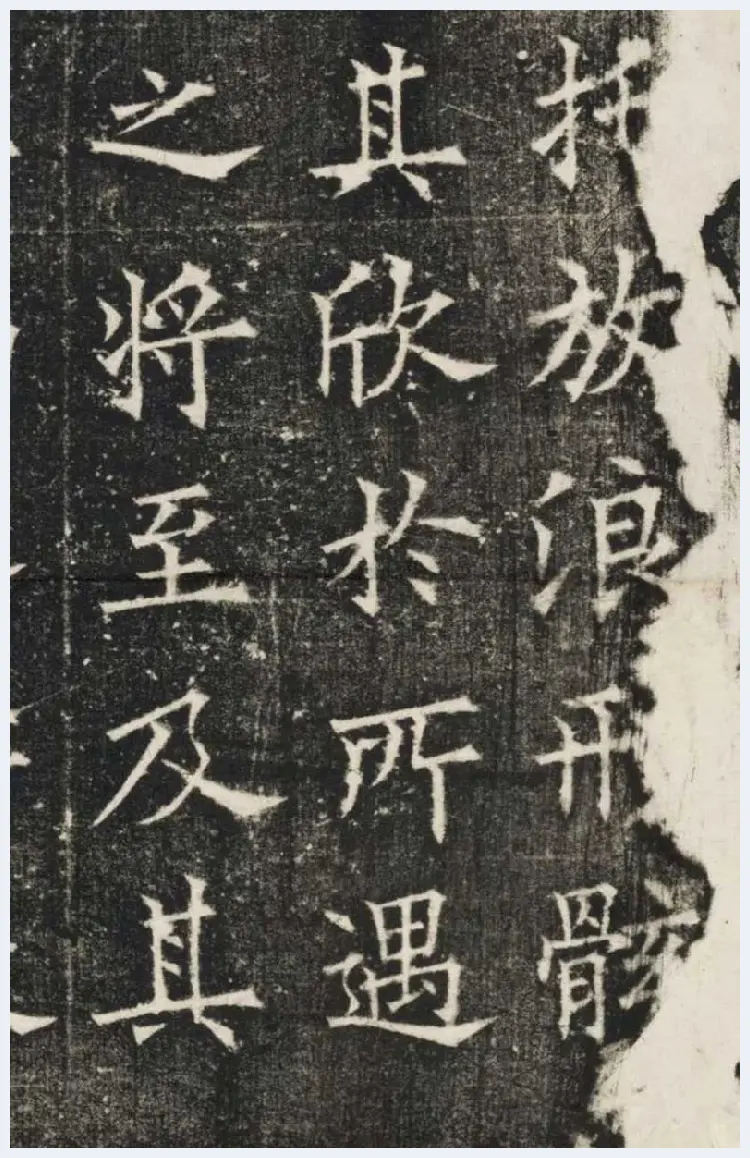 托放浪形骸
其欣於所遇
之將至及其